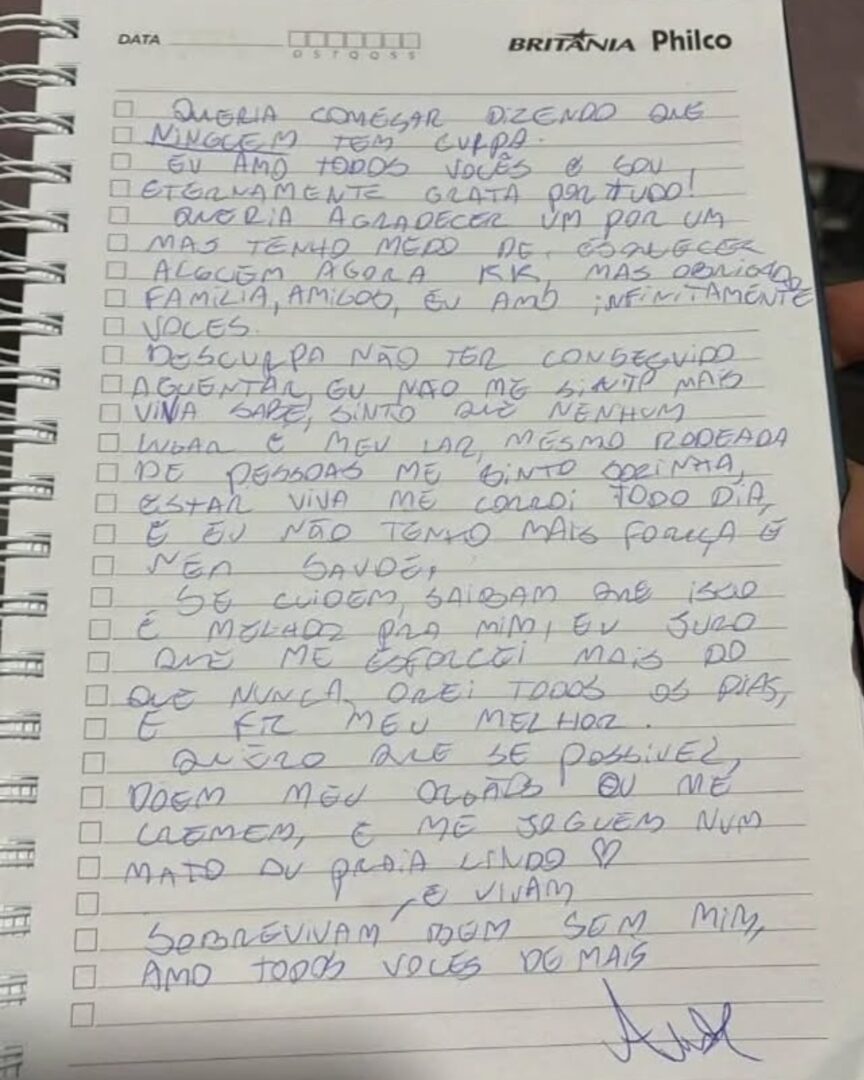 DATA
BRITÂNIA Philco
D S T Q Q S S
QUERIA COMEÇAR DIZENDO QUE
NINGUEM TEM CULPA.
EU AMO TODOS VOCÊS E SOU
ETERNAMENTE GRATA POR TUDO!
QUERIA AGRADECER UM POR UM
MAS TENHO MEDO DE ESQUECER
ALGUEM AGORA KK, MAS OBRIGADA
FAMILIA, AMIGOS, EU AMO INFINITAMENTE
VOCES.
DESCULPA NÃO TER CONSEGUIDO
AGUENTAR, EU NAO ME SINTO MAIS
VIVA SABE, SINTO QUE NENHUM
LUGAR É MEU LAR, MESMO RODEADA
DE PESSOAS ME SINTO SOZINHA,
ESTAR VIVA ME CORROI TODO DIA,
E EU NÃO TENHO MAIS FORÇA E
NEM SAUDE,
SE CUIDEM, SAIBAM QUE ISSO
É MELHOR PRA MIM, EU JURO
QUE ME ESFORCEI MAIS DO
QUE NUNCA, OREI TODOS OS DIAS,
E FIZ MEU MELHOR.
QUERO QUE SE POSSIVEL,
DOEM MEU ORGÃOS OU ME
CREMEM, E ME JOGUEM NUM
MATO OU PRAIA LINDO ♡
, E VIVAM
SOBREVIVAM BEM SEM MIM,
AMO TODOS VOCES DEMAIS